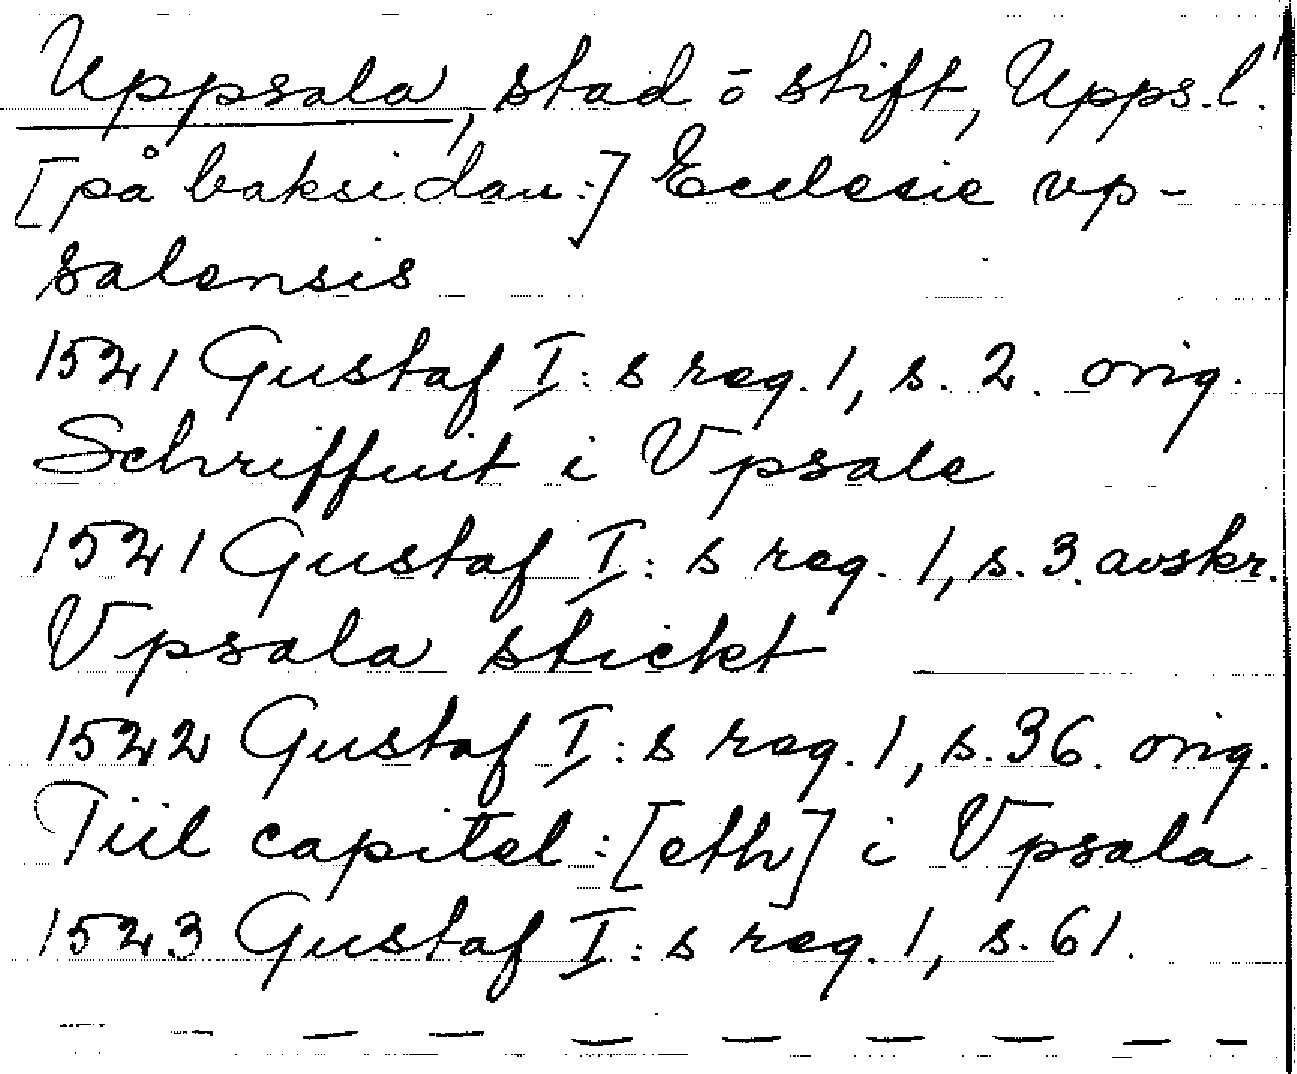 Uppsala, stad ō stift, Upps.l.
[på baksidan:] Ecclesie vp-
salensis
1521 Gustaf I:s reg. 1, s. 2. orig.
Schriffuit i Vpsale
1521 Gustaf I:s reg. 1, s. 3. avskr.
Vpsala stickt
1522 Gustaf I:s reg. 1, s. 36. orig.
Tiil capitel:[eth] i Vpsala
1523 Gustaf I:s reg. 1, s. 61.